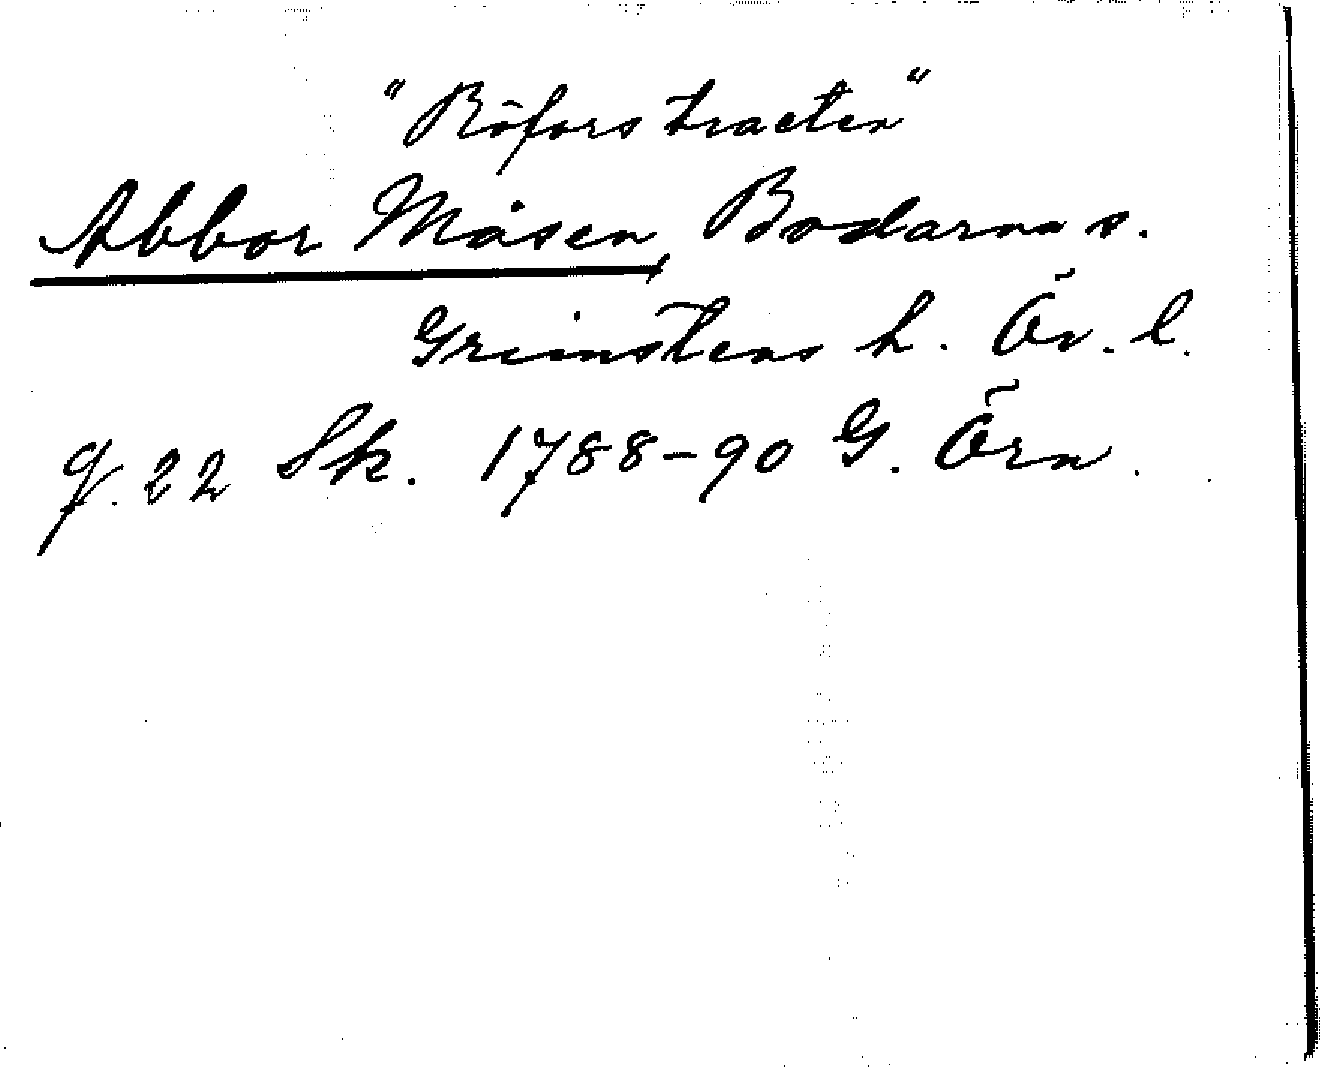 "Röfors tracten"
Abbor Måsen, Bodarnas s.
Grimstens h. Ör. l.
q. 22 Sk. 1788-90 G. Örn.